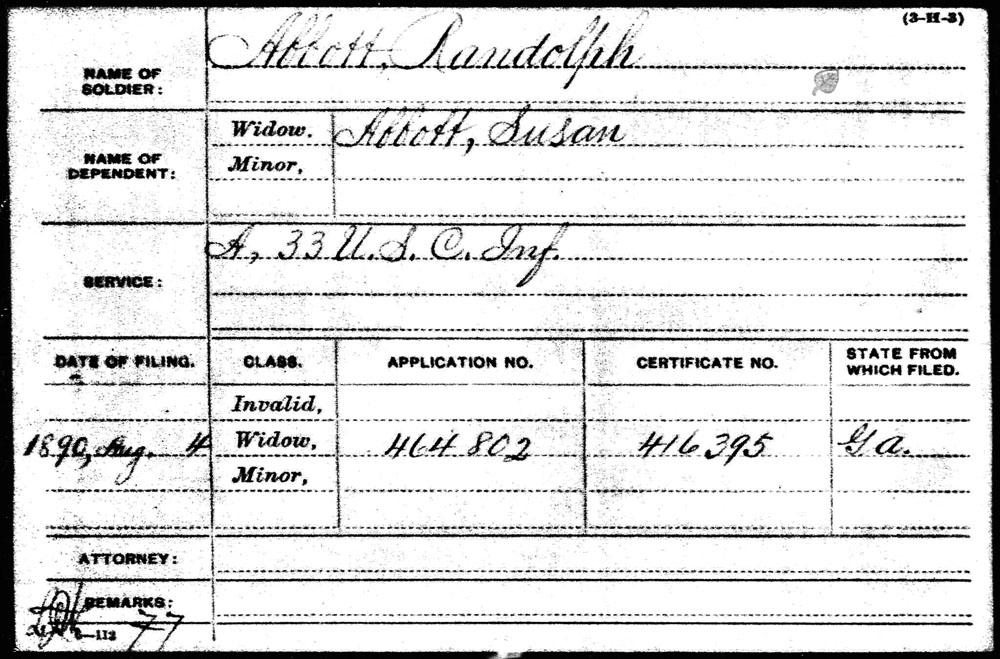 (3-H-3)
NAME OF SOLDIER: Abbott, Randolph
NAME OF DEPENDENT: Widow. Abbott, Susan
Minor,
SERVICE: A, 33 U.S.C. Inf.
DATE OF FILING. CLASS. APPLICATION NO. CERTIFICATE NO. STATE FROM WHICH FILED.
Invalid,
1890, Aug. 4 Widow, 464802 416395 Ga.
Minor,
ATTORNEY:
REMARKS:
-113 77